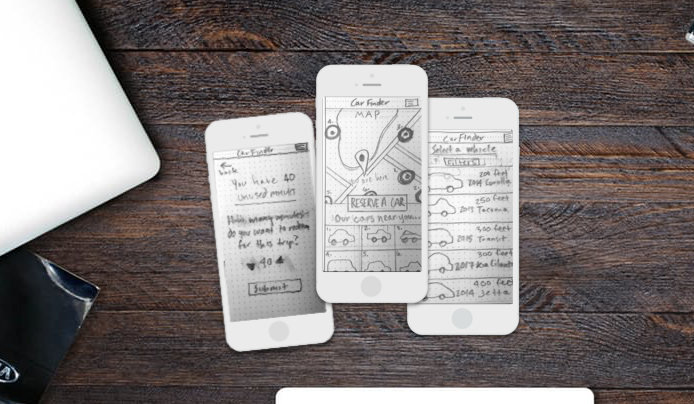 Car Finder
back
You have 40
unused
How many
do you want to
for this trip?
40
Submit
Car Finder
MAP
RESERVE A CAR
Our cars near you...
1. 2. 3.
4. 5. 6.
Car Finder
Select a vehicle
FILTERS
200 feet
2014 Corolla
250 feet
2013 Tacoma
300 feet
2015 Transit
300 feet
2017
400 feet
2014 Jetta